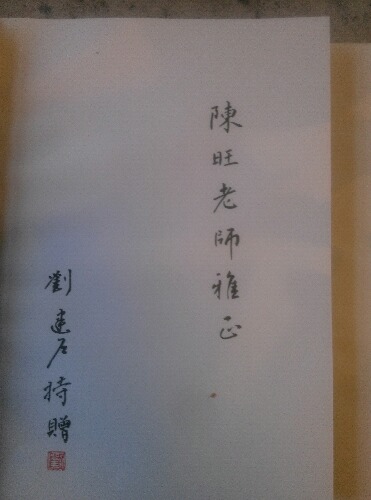 陳旺老師雅正
劉建石持贈